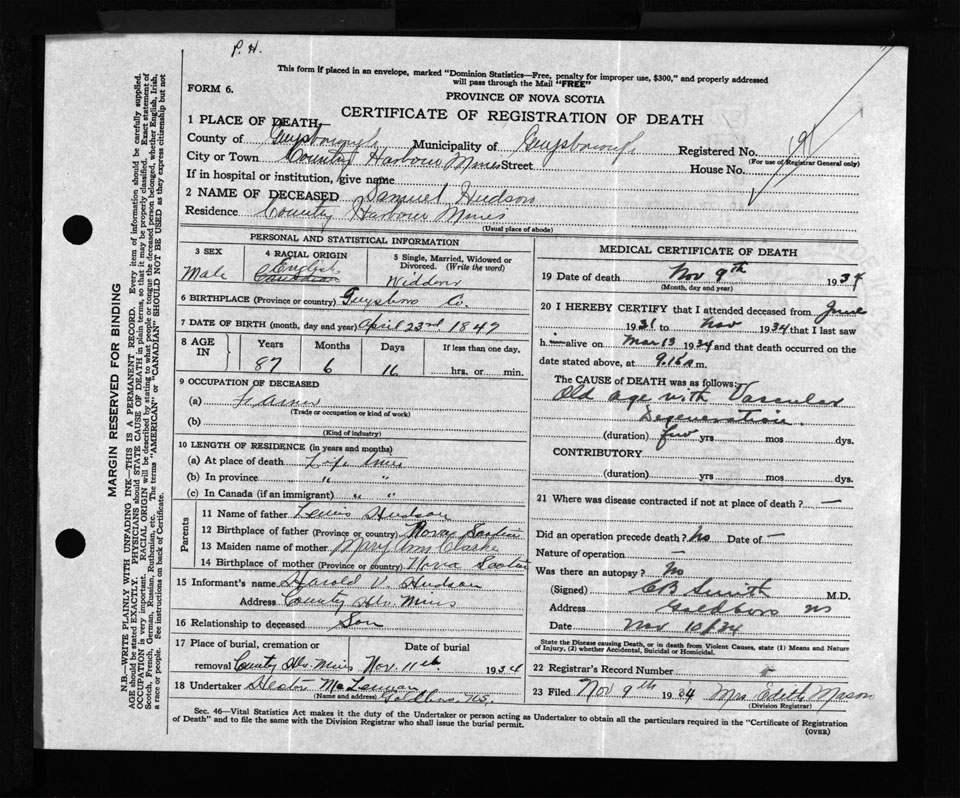 P. H.
This form if placed in an envelope, marked "Dominion Statistics—Free, penalty for improper use, $300," and properly addressed
will pass through the Mail "FREE"
FORM 6.
PROVINCE OF NOVA SCOTIA
CERTIFICATE OF REGISTRATION OF DEATH
1 PLACE OF DEATH,
County of Guysborough Municipality of Guysborough Registered No. 191
(For use of Registrar General only)
City or Town Country Harbour Mines Street House No.
If in hospital or institution, give name
2 NAME OF DECEASED Samuel Hudson
Residence Country Harbour Mines
(Usual place of abode)
PERSONAL AND STATISTICAL INFORMATION
3 SEX Male
4 RACIAL ORIGIN English Canadian
5 Single, Married, Widowed or Divorced. (Write the word) Widower
6 BIRTHPLACE (Province or country) Guysboro Co.
7 DATE OF BIRTH (month, day and year) April 23rd 1847
8 AGE IN Years Months Days If less than one day,
87 6 16 hrs. or min.
9 OCCUPATION OF DECEASED
(a) Farmer
(Trade or occupation or kind of work)
(b)
(Kind of industry)
10 LENGTH OF RESIDENCE (in years and months)
(a) At place of death Life Time
(b) In province " "
(c) In Canada (if an immigrant) " "
Parents
11 Name of father Lewis Hudson
12 Birthplace of father (Province or country) Nova Scotia
13 Maiden name of mother Mary Ann Clarke
14 Birthplace of mother (Province or country) Nova Scotia
15 Informant's name Harold V. Hudson
Address Country Hbr Mines
16 Relationship to deceased Son
17 Place of burial, cremation or Date of burial
removal Country Hbr Mines Nov. 11th 1934
18 Undertaker Hector
(Name and address) Goldboro N.S.
MEDICAL CERTIFICATE OF DEATH
19 Date of death Nov 9th 1934
(Month, day and year)
20 I HEREBY CERTIFY that I attended deceased from June
1931 to Nov 1934 that I last saw
h im alive on Mar 13 1934 and that death occurred on the
date stated above, at 9.15 a m.
The CAUSE OF DEATH was as follows:
Old age with Vascular
Degeneration
(duration) few yrs mos dys.
CONTRIBUTORY
(duration) yrs mos dys.
21 Where was disease contracted if not at place of death? —
Did an operation precede death? No Date of —
Nature of operation —
Was there an autopsy? No
(Signed) CB Smith M.D.
Address Goldboro NS
Date Nov 10/34
State the Disease causing Death, or in death from Violent Causes, state (1) Means and Nature
of Injury, (2) whether Accidental, Suicidal or Homicidal.
22 Registrar's Record Number
23 Filed Nov 9th 1934 Mrs Edith Mason
(Division Registrar)
Sec. 46—Vital Statistics Act makes it the duty of the Undertaker or person acting as Undertaker to obtain all the particulars required in the "Certificate of Registration
of Death" and to file the same with the Division Registrar who shall issue the burial permit.
(OVER)
MARGIN RESERVED FOR BINDING
N.B.—WRITE PLAINLY WITH UNFADING INK—THIS IS A PERMANENT RECORD. Every item of information should be carefully supplied.
AGE should be stated EXACTLY. PHYSICIANS should STATE CAUSE OF DEATH in plain terms, so that it may be properly classified. Exact statement of
OCCUPATION is very important. RACIAL ORIGIN will be described by stating to what people or tongue the deceased person belonged, whether English, Irish,
Scotch, French, German, Russian, Ruthenian, etc. The terms "AMERICAN" or "CANADIAN" SHOULD NOT BE USED as they express citizenship but not
a race or people. See instructions on back of Certificate.